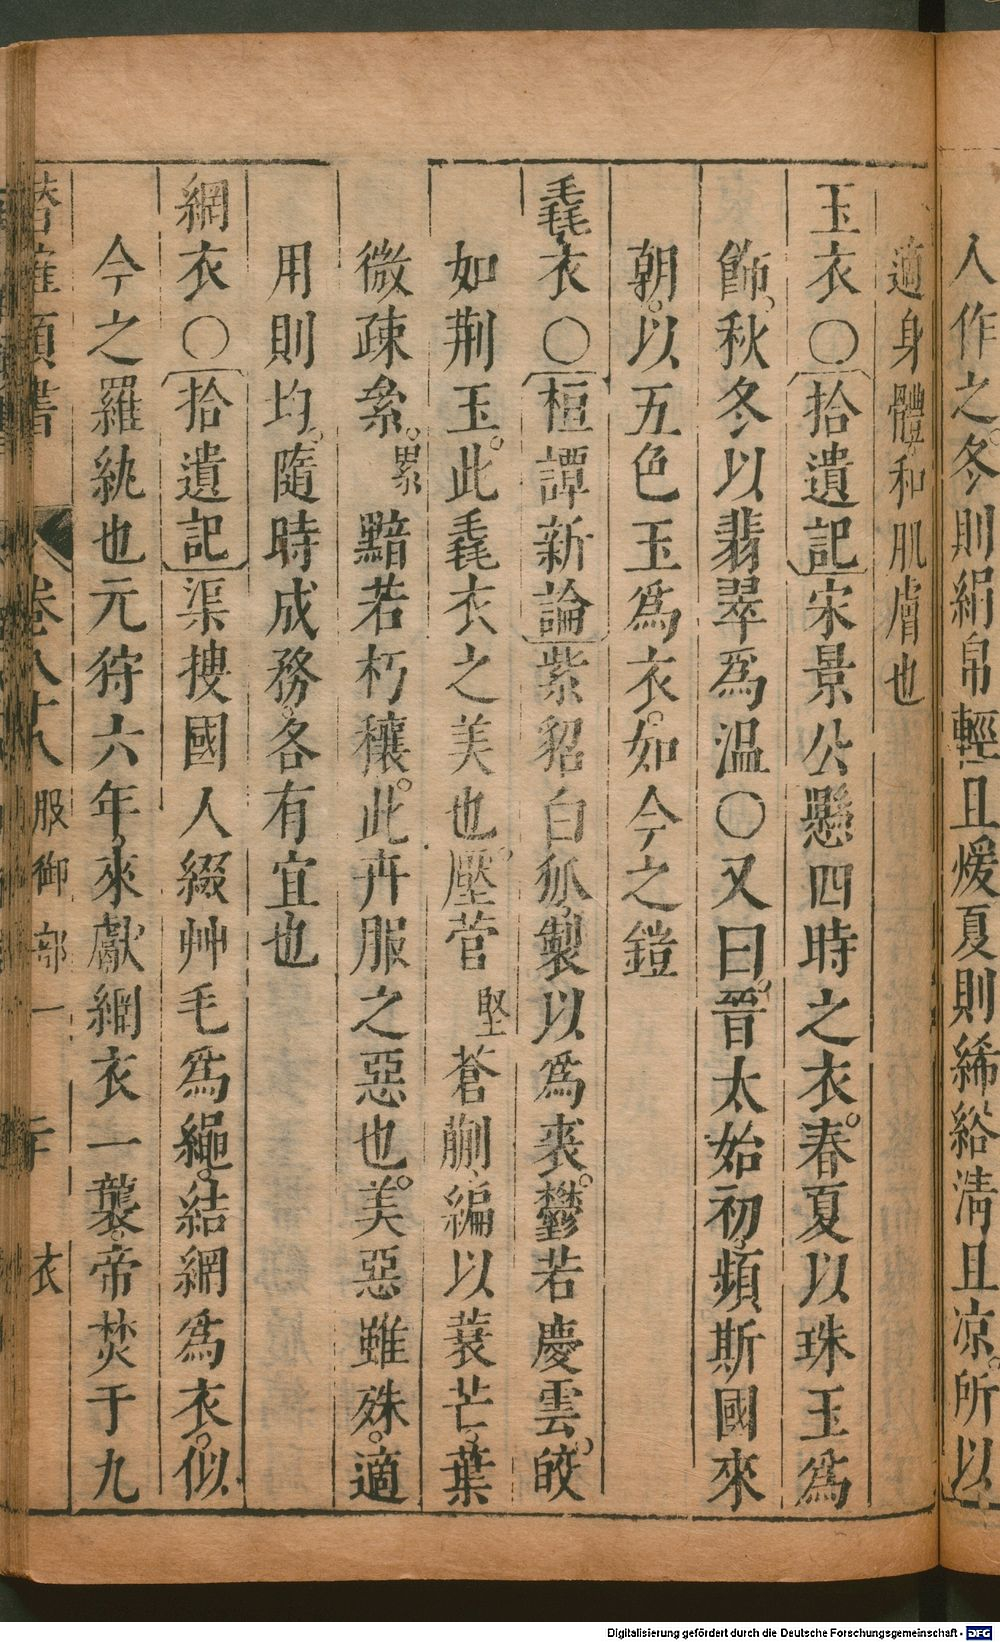 人作之冬則絹帛輕且煖夏則絺綌淸且凉所以
適身體和肌膚也
玉衣○拾遺記宋景公懸四時之衣春夏以珠玉爲
飾秋冬以翡翠爲温○又曰晉太始初頻斯國來
朝以五色玉爲衣如今之鎧
毳衣○桓譚新論紫貂白狐製以爲裘鬱若慶雲皎
如荆玉此毳衣之美也壓菅堅蒼蒯編以蓑芒葉
微疎絫累黯若朽穰此卉服之惡也美惡雖殊適
用則均隨時成務各有宜也
網衣○拾遺記渠搜國人綴艸毛爲繩結網爲衣似
今之羅紈也元狩六年來獻網衣一襲帝焚于九
類書 卷八十八 服御部一 二十 衣
Digitalisierung gefördert durch die Deutsche Forschungsgemeinschaft - DFG